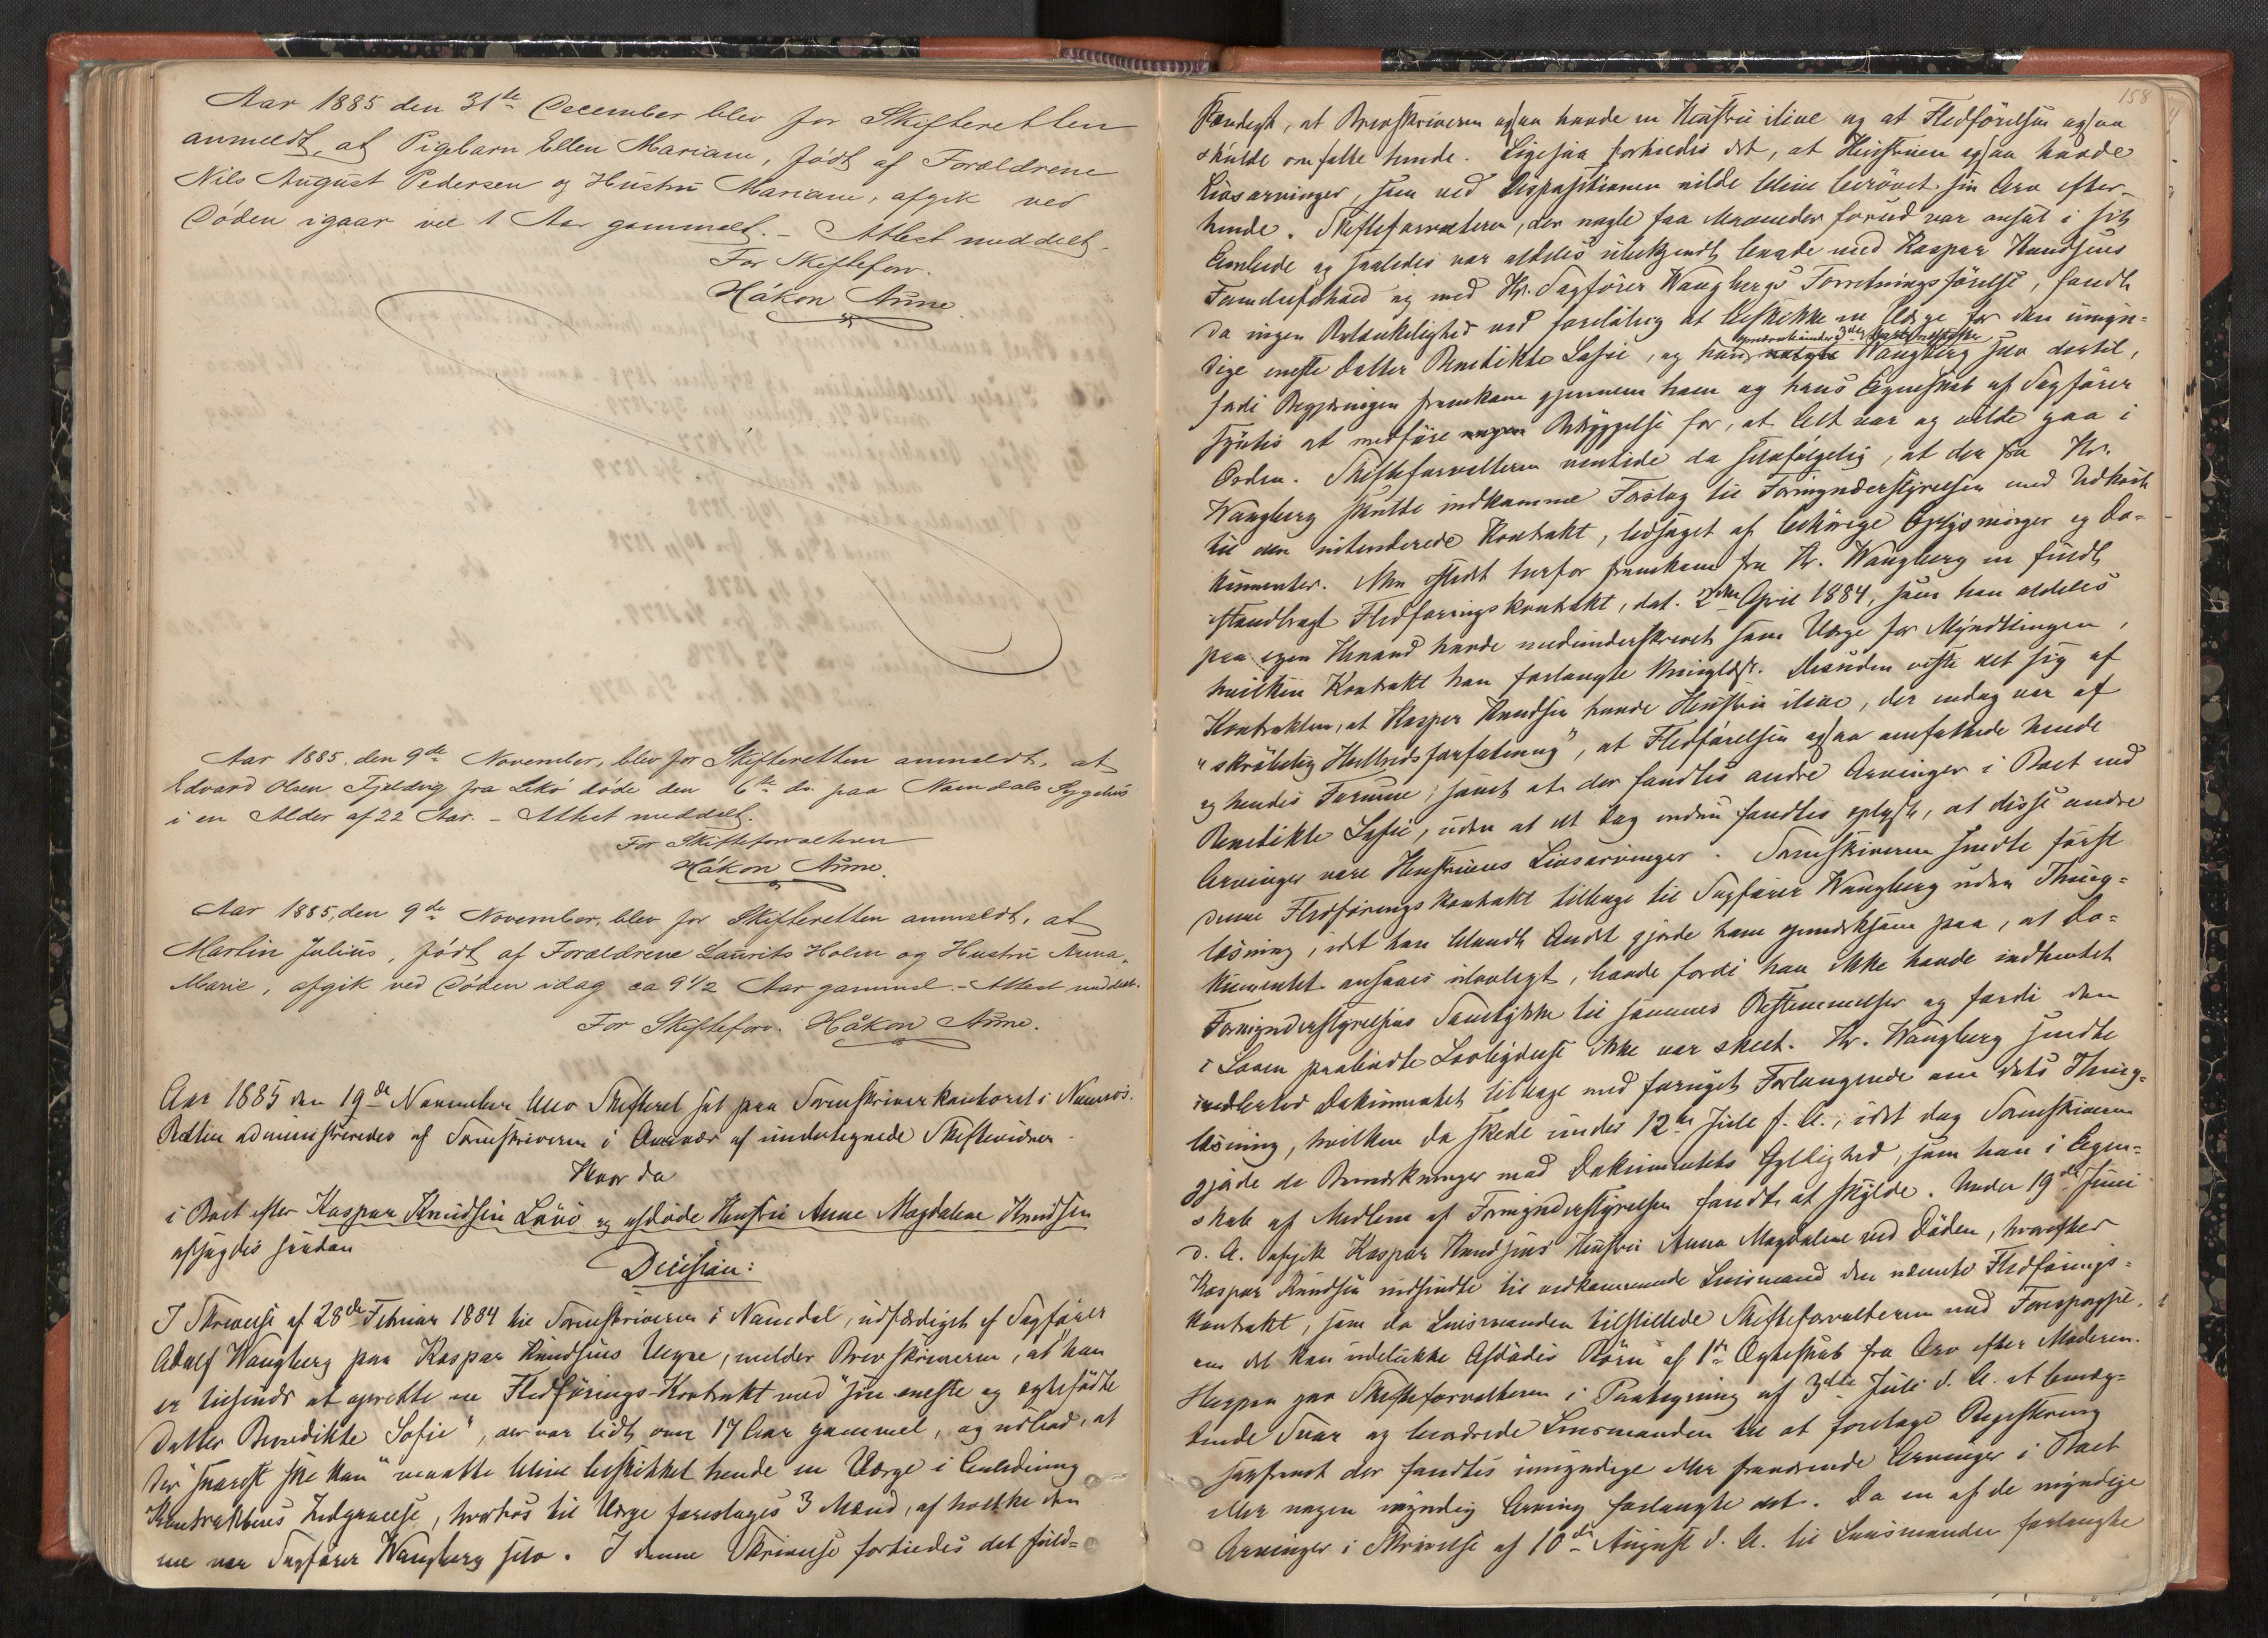 Aar 1885 den 31te December blev for Skifteretten
anmeldt, at Pigebarn Ellen Mariane, født af Forældrene
Nils August Pedersen og Hustru Mariane, afgik ved
Døden igaar vel 1 Aar gammelt. – Attest meddelt.
For Skifteforv.
Håkon Aune.
Aar 1885, den 9de November, blev for Skifteretten anmeldt, at
Edvard Olsen Fjeldvig fra Lekø døde den 6te ds. paa Namdals Sygehus
i en Alder af 22 Aar. – Attest meddelt.
For Skifteforvalteren
Håkon Aune.
Aar 1885, den 9de November, blev for Skifteretten anmeldt, at
Martin Julius, født af Forældrene Laurits Holm og Hustru Anna
Marie, afgik ved Døden idag ca 9 1/2 Aar gammel. – Attest meddelt.
For Skifteforv. Håkon Aune.
Aar 1885 den 19de November blev Skifteret sat paa Sorenskriverkontoret i Namsos.
Retten administreredes af Sorenskriveren i Overvær af undertegnede Skiftevidner.
Hvor da
i Boet efter Kaspar Knudsen Løvø og afdøde Hustru Anne Magdalene Knudsen
afsagdes saadan
Decision:
I Skrivelse af 28de Februar 1884 til Sorenskriveren i Namdal, udfærdiget af Sagfører
Adolf Wangberg paa Kaspar Knudsens Vegne, melder Brevskriveren, at han
er tilsinds at oprette en Fledførings-Kontrakt med "sin eneste og ægtefødte
Datter Benedikte Sofie", der var lidt over 17 Aar gammel, og udbad, at
der "snarest ske kan" maatte blive beskikket hende en Værge i Anledning
Kontraktens Indgaaelse, hvorhos til Værge foresloges 3 Mænd, af hvilke den
ene var Sagfører Wangberg selv. I denne Skrivelse fortiedes det fuld-
158
stændigt, at Brevskriveren ogsaa havde en Hustru ilive og at Fledførelsen ogsaa
skulde omfatte hende. Ligesaa fortiedes det, at Hustruen ogsaa havde
Livsarvinger, som ved Dispositionen vilde blive berøvet sin Arv efter
hende. Skifteforvalteren, der nogle faa Maaneder forud var ansat i sit
Embede og saaledes var aldeles ubekjendt baade med Kaspar Knudsens
Familieforhold og med Hr. Sagfører Wangbergs Forretningsførelse, fandt
da ingen Betænkelighed ved foreløbig at beskikke en Værge for den umyn-
dige eneste Datter Benedikte Sofie, og Wangberg selv dertil,
fordi Begjæringen fremkom gjennem ham og hans Egenskab af Sagfører
syntes at medføre nogen Betryggelse for, at Alt var og vilde gaa i
Orden. Skifteforvalteren ventede da selvfølgelig, at der fra Hr.
Wangberg skulde indkomme Forslag til Formynderstyrelsen med Udkast
til den intenderede Kontrakt, ledsaget af behørige Oplysninger og Do-
kumenter. Men istedet herfor fremkom fra Hr. Wangberg en fuldt
istandbragt Fledføringskontrakt, dat. 2den April 1884, som han aldeles
paa egen Haand havde medunderskrevet som Værge for Myndlingen,
hvilken Kontrakt han forlangte thinglæst. Desuden viste det sig af
Kontrakten, at Kaspar Knudsen havde Hustru ilive, der endog var af
"skrøbelig Helbredsforfatning", at Fledførelsen ogsaa omfattede hende
og hendes Formue, samt at der fandtes andre Arvinger i Boet end
Benedikte Sofie, uden at det dog endnu fandtes oplyst, at disse andre
Arvinger vare Hustruens Livsarvinger. Sorenskriveren sendte først
denne Fledføringskontrakt tilbage til Sagfører Wangberg uden Thing-
læsning, idet han blandt Andet gjorde ham opmærksom paa, at Do-
kumentet ansaaes ulovligt, baade fordi han ikke havde indhentet
Formynderstyrelsens Samtykke til sammes Bestemmelser og fordi den
i Loven paabudte Lovligdøelse ikke var skeet. Hr. Wangberg sendte
imidlertid Dokumentet tilbage med fornyet Forlangende om dets Thing-
læsning, hvilken da skede under 12te Juli f. A., idet dog Sorenskriveren
gjorde de Bemærkninger mod Dokumentets Gyldighed, som han i Egen-
skab af Medlem af Formynderstyrelsen fandt at skylde. Under 19de Juni
d. A. afgik Kaspar Knudsens Hustru Anna Magdalene ved Døden, hvorefter
Kaspar Knudsen indsendte til vedkommende Lensmand den nævnte Fledførings-
kontrakt, som da Lensmanden tilstillede Skifteforvalteren med Forespørgsel
om det kan udelukke Afdødes Børn af 1ste Ægteskab fra Arv efter Moderen.
Herpaa gav Skifteforvalteren i Paategning af 3die Juli d. A. et benæg-
tende Svar og beordrede Lensmanden til at foretage Registrering
saafremt der fandtes umyndige eller fraværende Arvinger i Boet
eller nogen myndig Arving forlangte det. Da en af de myndige
Arvinger i Skrivelse af 10de August d. A. til Lensmanden forlangte